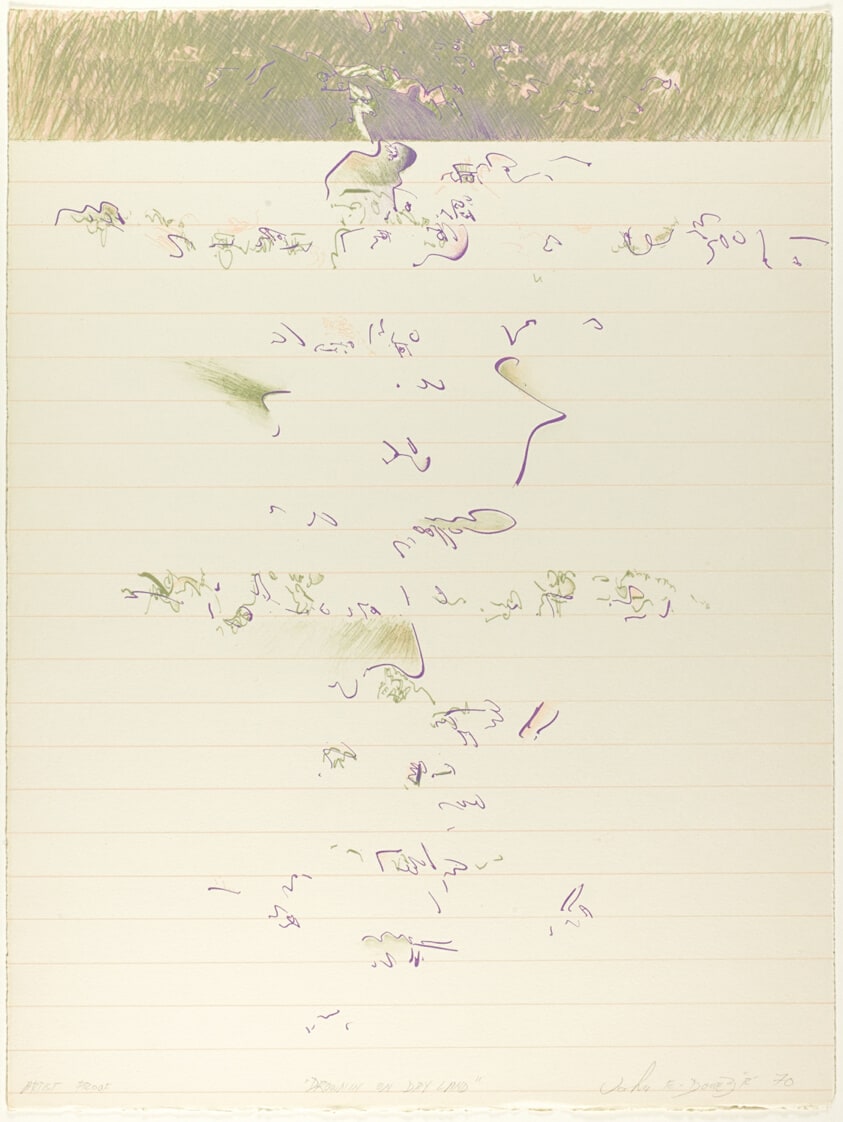 ARTIST PROOF "DROWNIN ON DRY LAND" John E. Dowell Jr 70